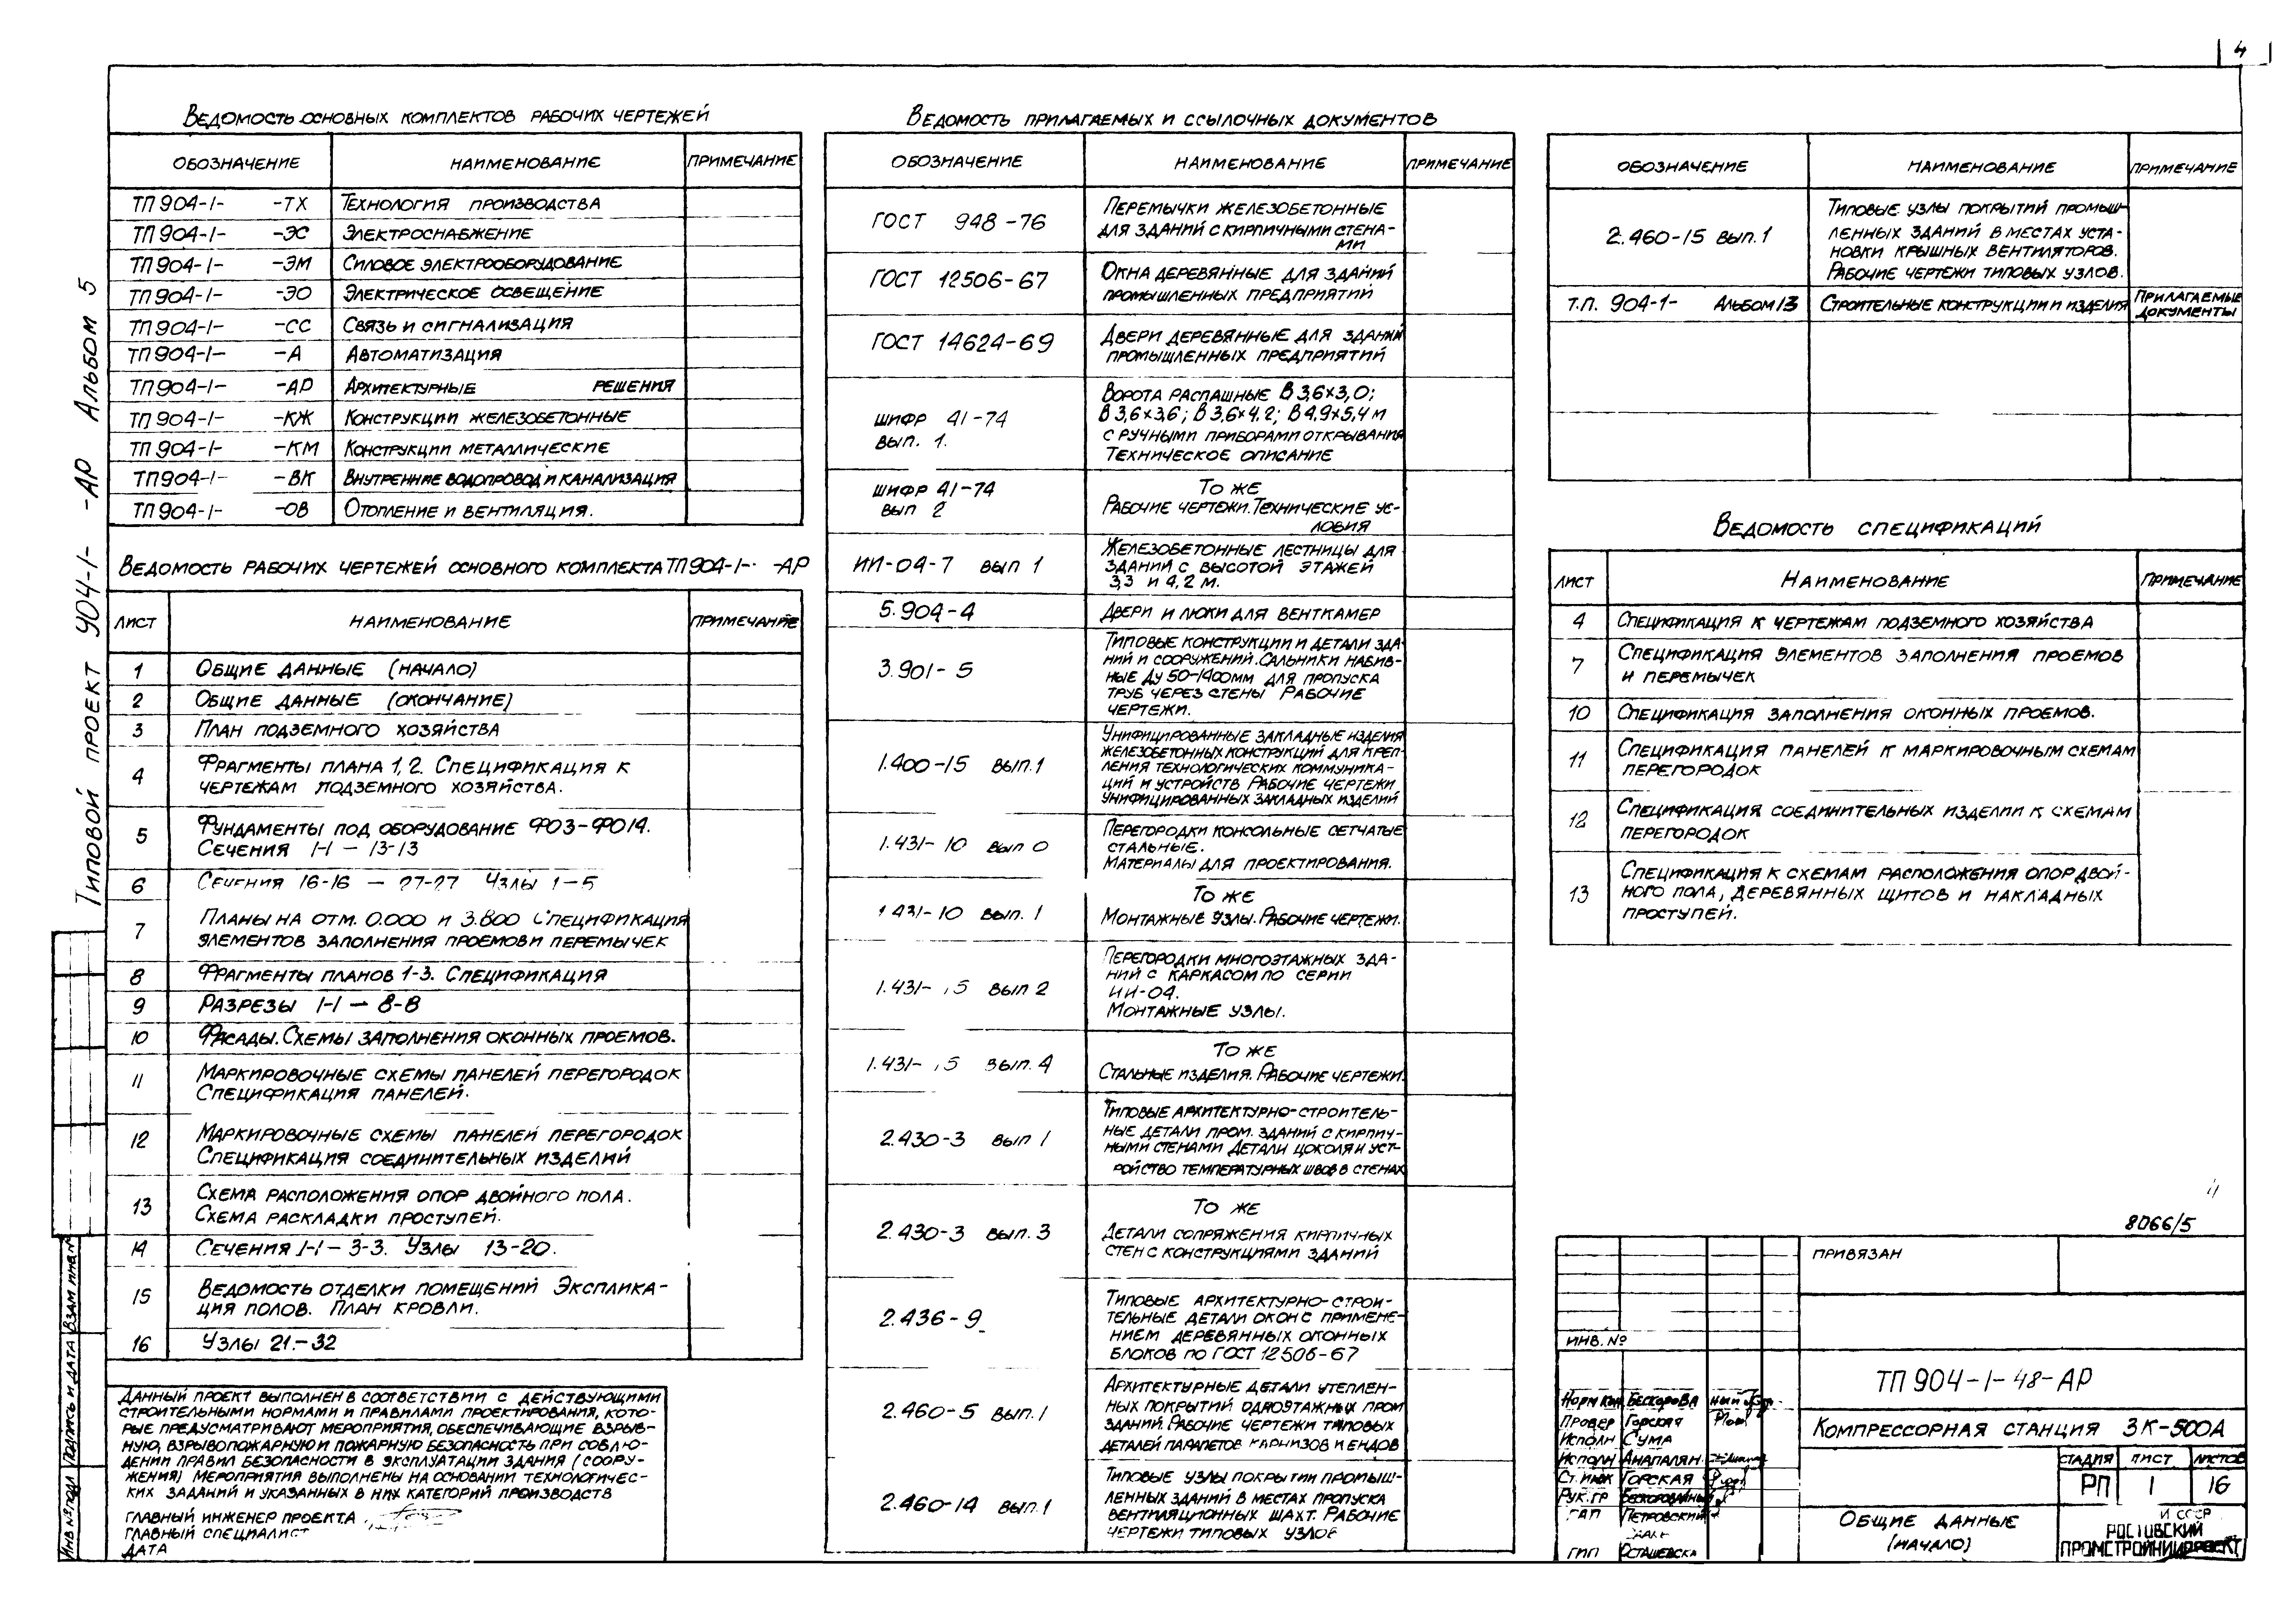 4
Типовой проект 904-1- -АР Альбом 5
Ведомость основных комплектов рабочих чертежей
Обозначение Наименование Примечание
ТП904-1- -ТХ Технология производства
ТП904-1- -ЭС Электроснабжение
ТП904-1- -ЭМ Силовое электрооборудование
ТП904-1- -ЭО Электрическое освещение
ТП904-1- -СС Связь и сигнализация
ТП904-1- -А Автоматизация
ТП904-1- -АР Архитектурные решения
ТП904-1- -КЖ Конструкции железобетонные
ТП904-1- -КМ Конструкции металлические
ТП904-1- -ВК Внутренние водопровод и канализация
ТП904-1- -ОВ Отопление и вентиляция.
Ведомость рабочих чертежей основного комплекта ТП904-1- -АР
Лист Наименование Примечание
1 Общие данные (начало)
2 Общие данные (окончание)
3 План подземного хозяйства
4 Фрагменты плана 1,2. Спецификация к
чертежам подземного хозяйства.
5 Фундаменты под оборудование ФО3-ФО14.
Сечения 1-1 – 13-13
6 Сечения 16-16 – 27-27 Узлы 1-5
7 Планы на отм. 0.000 и 3.800 Спецификация
элементов заполнения проемов и перемычек
8 Фрагменты планов 1-3. Спецификация
9 Разрезы 1-1 – 8-8
10 Фасады. Схемы заполнения оконных проемов.
11 Маркировочные схемы панелей перегородок
Спецификация панелей.
12 Маркировочные схемы панелей перегородок
Спецификация соединительных изделий
13 Схема расположения опор двойного пола.
Схема раскладки проступей.
14 Сечения 1-1 – 3-3. Узлы 13-20.
15 Ведомость отделки помещений Эксплика-
ция полов. План кровли.
16 Узлы 21-32
Данный проект выполнен в соответствии с действующими
строительными нормами и правилами проектирования, кото-
рые предусматривают мероприятия, обеспечивающие взрыв-
ную, взрывопожарную и пожарную безопасность при соблю-
дении правил безопасности в эксплуатации здания (соору-
жения) Мероприятия выполнены на основании технологичес-
ких заданий и указанных в них категорий производств
Главный инженер проекта
Главный специалист
Дата
Ведомость прилагаемых и ссылочных документов
Обозначение Наименование Примечание
ГОСТ 948-76 Перемычки железобетонные
для зданий с кирпичными стена-
ми
ГОСТ 12506-67 Окна деревянные для зданий
промышленных предприятий
ГОСТ 14624-69 Двери деревянные для зданий
промышленных предприятий
шифр 41-74
вып. 1.
Ворота распашные В 3,6×3,0;
В 3,6×3,6; В 3,6×4,2; В 4,9×5,4 м
с ручными приборами открывания
Техническое описание
шифр 41-74
вып 2
То же
Рабочие чертежи. Технические ус-
ловия
ИИ-04-7 вып 1 Железобетонные лестницы для
зданий с высотой этажей
3,3 и 4,2 м.
5.904-4 Двери и люки для венткамер
3.901-5 Типовые конструкции и детали зда-
ний и сооружений. Сальники набив-
ные Ду 50-1400мм для пропуска
труб через стены Рабочие
чертежи.
1.400-15 вып.1 Унифицированные закладные изделия
железобетонных конструкций для креп-
ления технологических коммуника-
ций и устройств Рабочие чертежи
унифицированных закладных изделий
1.431-10 вып 0 Перегородки консольные сетчатые
стальные.
Материалы для проектирования.
1 431-10 вып. 1 То же
Монтажные узлы. Рабочие чертежи.
1.431- 5 вып 2 Перегородки многоэтажных зда-
ний с каркасом по серии
ИИ-04.
Монтажные узлы.
1.431- 5 вып. 4 То же
Стальные изделия. Рабочие чертежи.
2.430-3 вып 1 Типовые архитектурно-строитель-
ные детали пром. зданий с кирпич-
ными стенами Детали цоколя и уст-
ройство температурных швов в стенах
2.430-3 вып. 3 То же
Детали сопряжения кирпичных
стен с конструкциями зданий
2.436-9 Типовые архитектурно-строи-
тельные детали окон с примене-
нием деревянных оконных
блоков по ГОСТ 12506-67
2.460-5 вып.1 Архитектурные детали утеплен-
ных покрытий одноэтажных пром
зданий. Рабочие чертежи типовых
деталей парапетов карнизов и ендов
2.460-14 вып.1 Типовые узлы покрытии промыш-
ленных зданий в местах пропуска
вентиляционных шахт. Рабочие
чертежи типовых узлов
Обозначение Наименование Примечание
2.460-15 вып. 1 Типовые узлы покрытий промыш-
ленных зданий в местах уста-
новки крышных вентиляторов.
Рабочие чертежи типовых узлов.
Т.П. 904-1- Альбом 13 Строительные конструкции и изделия Прилагаемые
документы
Ведомость спецификаций
Лист Наименование Примечание
4 Спецификация к чертежам подземного хозяйства
7 Спецификация элементов заполнения проемов
и перемычек
10 Спецификация заполнения оконных проемов.
11 Спецификация панелей к маркировочным схемам
перегородок
12 Спецификация соединительных изделии к схемам
перегородок
13 Спецификация к схемам расположения опор двой-
ного пола, деревянных щитов и накладных
проступей.
4
8066/5
Привязан
Инв. №
ТП 904-1-48-АР
Компрессорная станция 3К-500А
Стадия Лист Листов
РП 1 16
Общие данные
(начало)
И СССР
Ростовский
Промстройниипроект
Норм кон
Провер Горская
Исполн Сума
Исполн Анапалян
Ст. инж Горская
Рук. гр
ГАП Петровский
ГИП
Инв № подл Подпись и дата Взам инв №